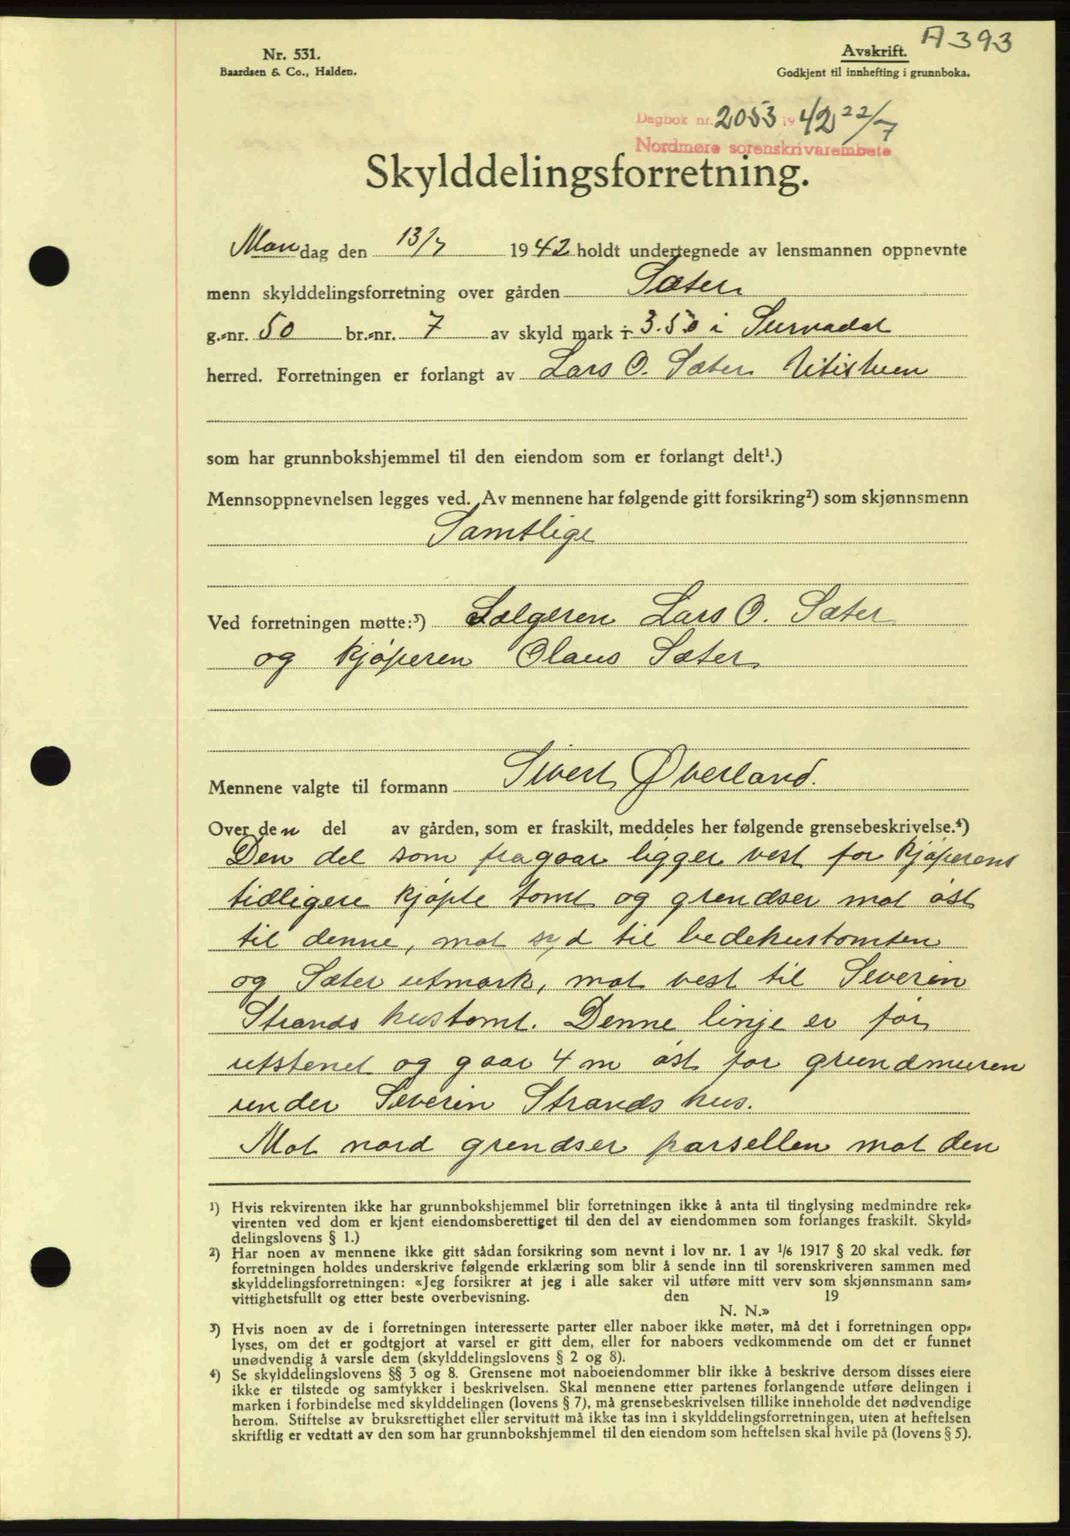 A 393
Nr. 531.
Baardsen & Co., Halden.
Avskrift.
Godkjent til innhefting i grunnboka.
Dagbok nr. 2053 19 42 22/7
Nordmøre sorenskrivarembete
Skylddelingsforretning.
Mandag den 13/7 1942 holdt undertegnede av lensmannen oppnevnte
menn skylddelingsforretning over gården Sæter
g.-nr. 50 br.-nr. 7 av skyld mark 3.50 i Surnadal
herred. Forretningen er forlangt av Lars O. Sæter
som har grunnbokshjemmel til den eiendom som er forlangt delt¹.)
Mennsoppnevnelsen legges ved. Av mennene har følgende gitt forsikring²) som skjønnsmenn
Samtlige
Ved forretningen møtte:³) Sælgeren Lars O. Sæter
og kjøperen Olaus Sæter
Mennene valgte til formann Sivert Øverland.
Over den del av gården, som er fraskilt, meddeles her følgende grensebeskrivelse.⁴)
Den del som fragaar ligger vest for kjøperens
tidligere kjøpte tomt og grendser mot øst
til denne, mot syd til bedehustomten
og Sæter utmark, mot vest til Severin
Strands hustomt. Denne linje er før
utstenet og gaar 4 m øst for grundmuren
under Severin Strands hus.
Mot nord grendser parsellen mot den
¹) Hvis rekvirenten ikke har grunnbokshjemmel blir forretningen ikke å anta til tinglysing medmindre rek-
virenten ved dom er kjent eiendomsberettiget til den del av eiendommen som forlanges fraskilt. Skyld-
delingslovens § 1.)
²) Har noen av mennene ikke gitt sådan forsikring som nevnt i lov nr. 1 av 1/6 1917 § 20 skal vedk. før
forretningen holdes underskrive følgende erklæring som blir å sende inn til sorenskriveren sammen med
skylddelingsforretningen: «Jeg forsikrer at jeg i alle saker vil utføre mitt verv som skjønnsmann sam-
vittighetsfullt og etter beste overbevisning. den 19
N. N.»
³) Hvis noen av de i forretningen interesserte parter eller naboer ikke møter, må det i forretningen opp-
lyses, om det er godtgjort at varsel er gitt dem, eller for naboers vedkommende om det er funnet
unødvendig å varsle dem (skylddelingslovens § 2 og 8).
⁴) Se skylddelingslovens §§ 3 og 8. Grensene mot naboeiendommer blir ikke å beskrive dersom disses eiere
ikke er tilstede og samtykker i beskrivelsen. Skal mennene etter partenes forlangende utføre delingen i
marken i forbindelse med skylddelingen (lovens § 7), må grensebeskrivelsen tillike inneholde det nødvendige
herom. Stiftelse av bruksrettighet eller servitutt må ikke tas inn i skylddelingsforretningen, uten at heftelsen
skriftlig er vedtatt av den som har grunnbokshjemmel til den eiendom som heftelsen skal hvile på (lovens § 5).